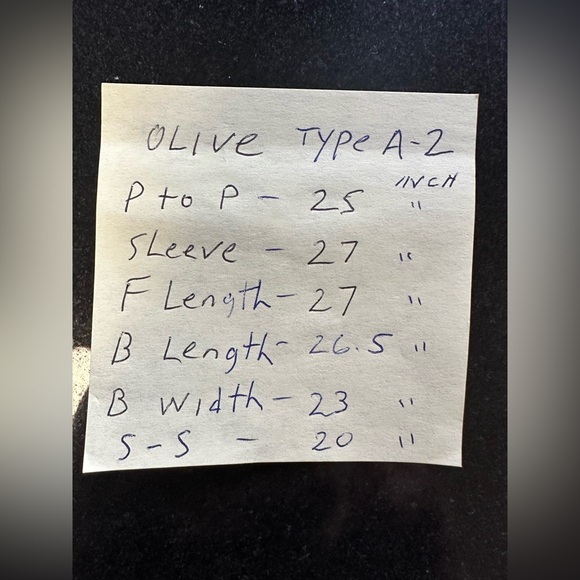 OLIVE TYPE A-2
INCH
P to P - 25 "
SLeeve - 27 "
F Length - 27 "
B Length - 26.5 "
B Width - 23 "
S-S - 20 "